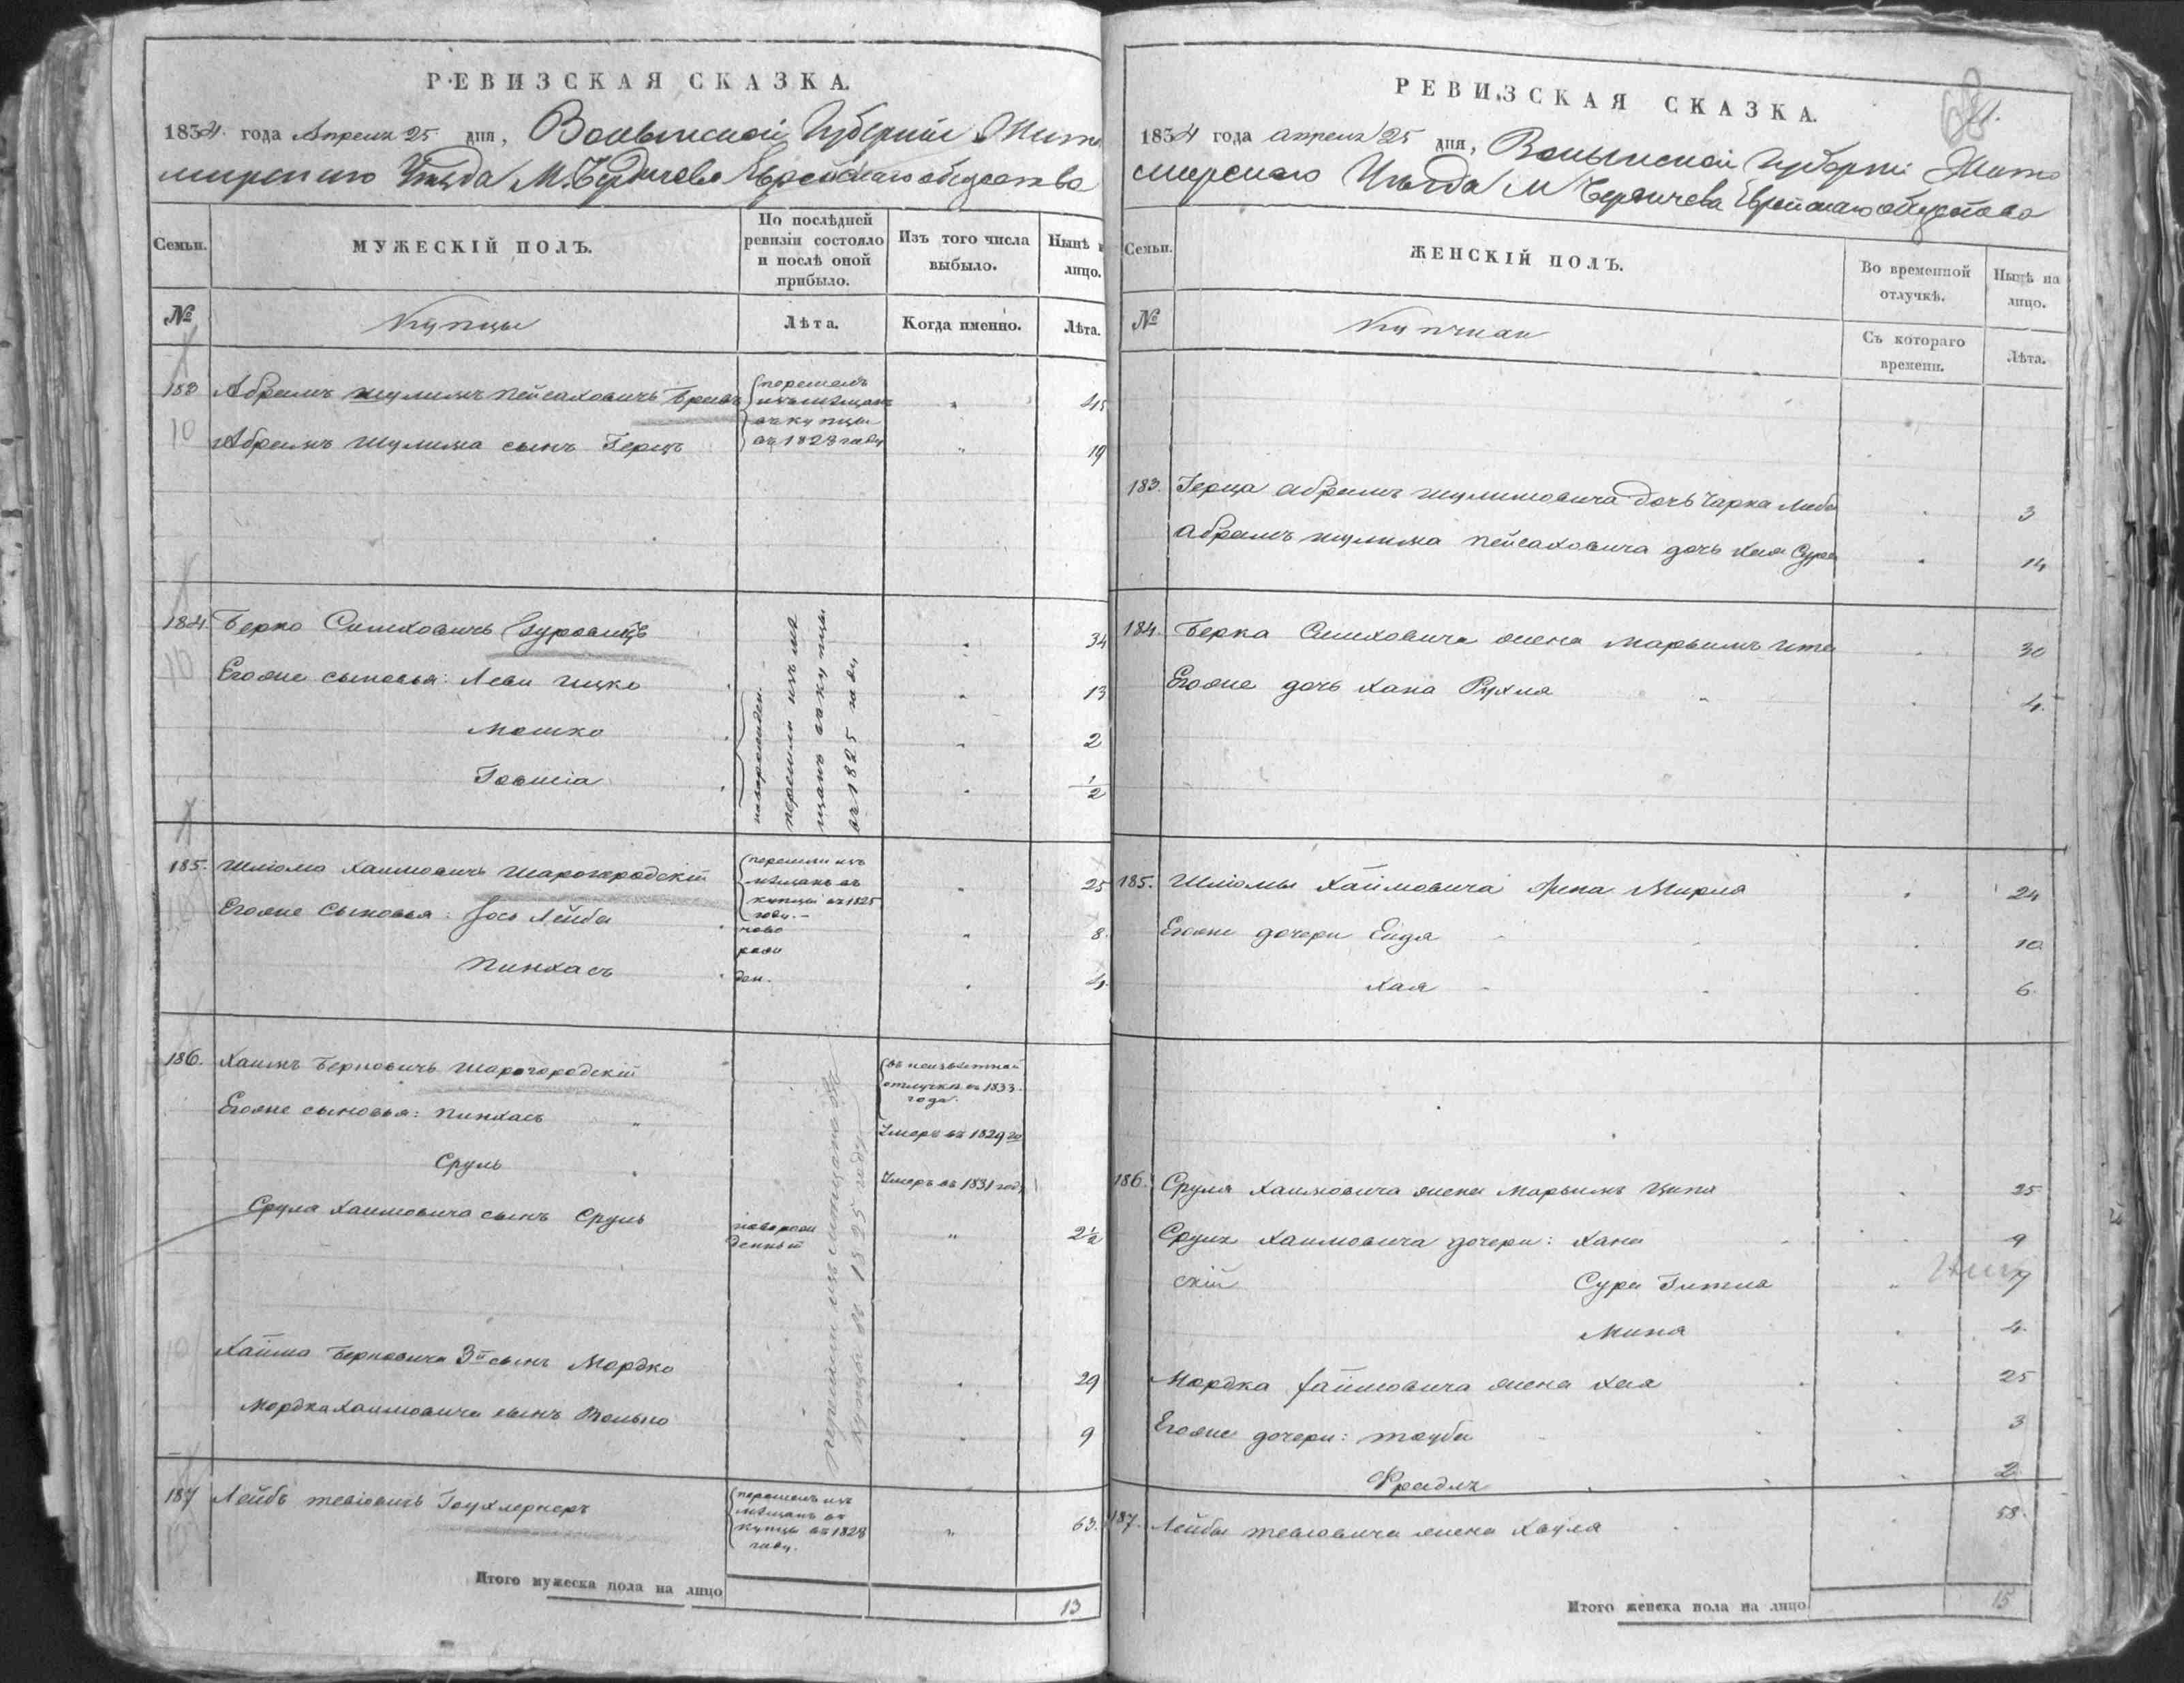 РЕВИЗСКАЯ СКАЗКА.
1834 года Апреля 25 дня, Волынской Губернии Жито
мирского Уезда М. Бердичева Еврейскаго общества
Семьи.
МУЖЕСКІЙ ПОЛЪ.
По послѣдней ревизіи состояло и послѣ оной прибыло.
Изъ того числа выбыло.
Нынѣ
лицо.
№
Купцы
Лѣта.
Когда именно.
Лѣта.
183 Абрамъ Шулимъ Пейсаховичъ
перешелъ
изъ мѣщанъ
въ купцы
въ 1823 году
45
10
Абрамъ Шулима сынъ Герцъ
19
184 Берко Симховичъ Гуровицъ
34
10
Егоже сыновья: Леви Ицко
13
Мошко
2
½
новорожден.
перешли изъ мѣ
щанъ въ купцы
въ 1825 году
185. Шліома Хаимовичъ Шарогородскій
перешли изъ
мѣщанъ въ
купцы въ 1825
году.
25
Егоже Сыновья: Іось Лейба
ново
8
Пинхасъ
рож
ден.
4
186. Хаимъ Берковичъ Шарогородскій
въ неизвѣстной
отлучкѣ съ 1833
года.
Егоже сыновья: Пинхасъ
Умеръ въ 1829 го
Сруль
Умеръ въ 1831 году
Срула Хаимовича сынъ Сруль
новорож
денный
2½
перешли изъ мѣщанъ въ
купцы въ 1825 году
10
Хаима Берковича 3й сынъ Мордко
29
Мордка Хаимовича сынъ Волько
9
187 Лейбъ Тевіовичъ
перешелъ изъ
мѣщанъ въ
купцы въ 1828
году.
63.
Итого мужеска пола на лицо
13
РЕВИЗСКАЯ СКАЗКА.
1834 года апреля 25 дня, Волынской Губерніи Жито
мирскаго Уѣзда М Бердичева Еврейскаго общества
Семьи.
ЖЕНСКІЙ ПОЛЪ.
Во временной отлучкѣ.
Нынѣ на лицо.
№
Съ котораго времени.
Лѣта.
183. Герца Абрамъ Шулимовича дочь Чарна Либа
3
Абрамъ Шулима Пейсаховича дочь Хая Сура
14
184. Берка Симховича жена Марьямъ Ита
30
Егоже дочь Хана Рухля
4.
185. Шліомы Хаймовича жена Мирля
24
Егоже дочери Ейдя
10
Хая
6.
186. Срула Хаимовича жена Марьямъ Ципа
25
Сруля Хаимовича дочери: Хана
9
Сура Гитла
Миня
4.
Мордка Хаймовича жена Хая
25
Егоже дочери: Тауба
3
Фрейдля
2.
187. Лейбы Тевіовича жена Хаўля
58.
Итого женска пола на лицо
15